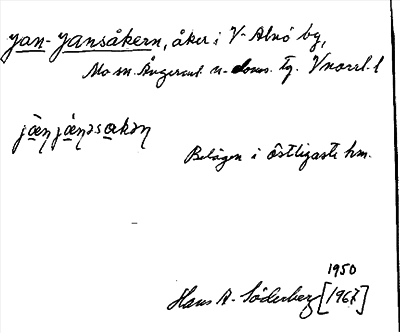 Jan-Jansåkern, åker i V-Alnö by,
Mo sn. Ångerml. n. doms. tg. Vnorrl. l
Belägen i östligaste hm.
1950
Hans A. Söderberg [1967]